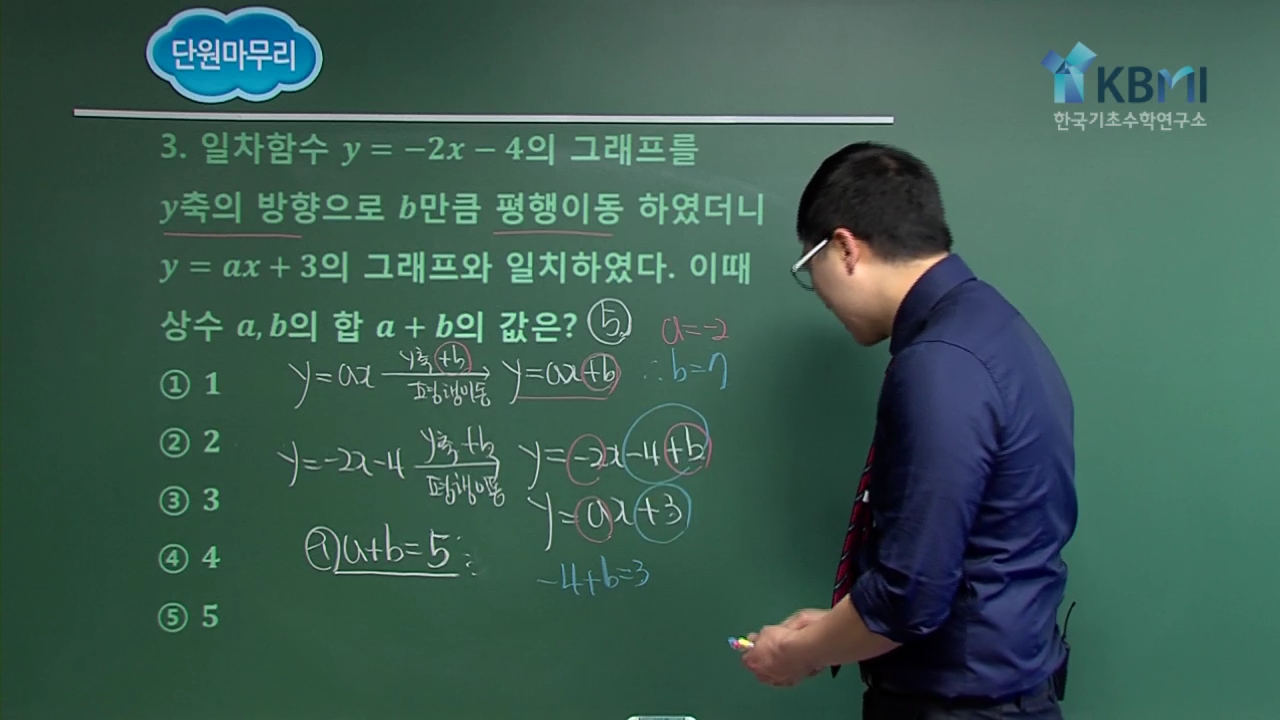 단원마무리
KBMI
한국기초수학연구소
3. 일차함수 y = −2x − 4의 그래프를
y축의 방향으로 b만큼 평행이동 하였더니
y = ax + 3의 그래프와 일치하였다. 이때
상수 a, b의 합 a + b의 값은? ⑤
a=-2
① 1
y=ax y축 +b 평행이동 y=ax+b
∴b=7
② 2
y=-2x-4 y축 +b 평행이동 y=-2x-4+b
③ 3
y=ax+3
④ 4
a+b=5
-4+b=3
⑤ 5